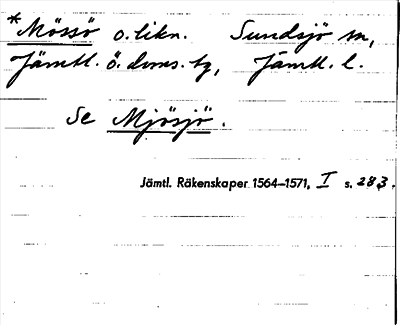 *Mössö o. likn. Sundsjö sn,
Jämtl. ö. doms. tg, Jämtl. l.
Se Mjösjö.
Jämtl. Räkenskaper 1564–1571, I s. 283.